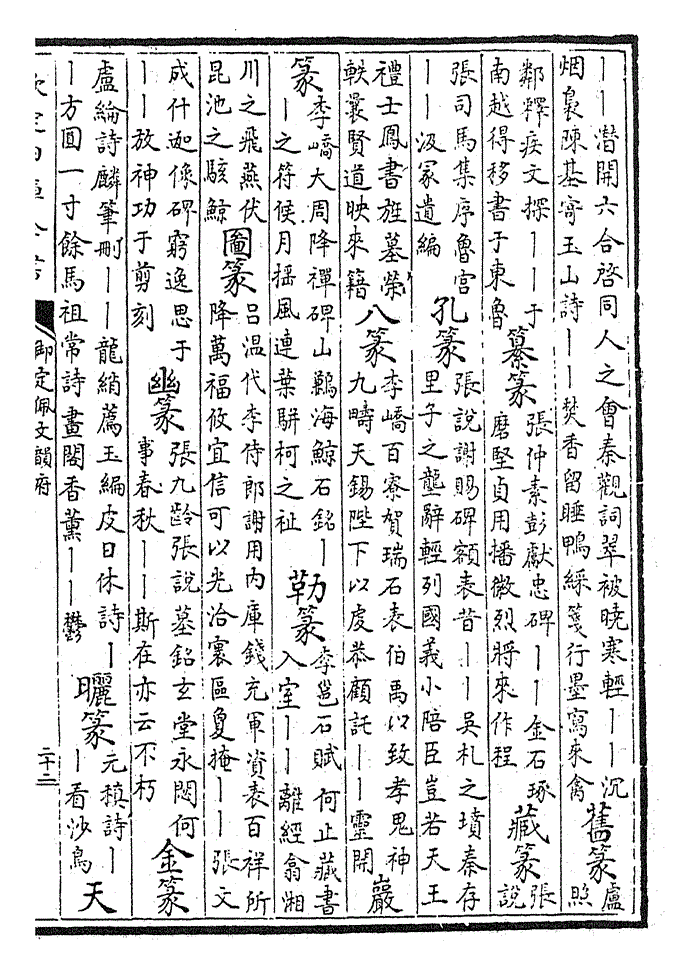 ｜｜潛開六合啓同人之會秦觀詞翠被曉寒輕｜｜沉
烟裊陳基寄玉山詩｜｜焚香留睡鴨綵箋行墨寫來禽
舊篆
盧
照
鄰釋疾文探｜｜于
南越得移書于東魯
纂篆
張仲素彭獻忠碑｜｜金石琢
磨堅貞用播徽烈將來作程
藏篆
張
說
張司馬集序魯宫
｜｜汲冢遺編
孔篆
張說謝賜碑額表昔｜｜吳札之墳秦存
里子之壟辭輕列國義小陪臣豈若天王
禮士鳳書旌墓榮
軼曩賢道映來籍
八篆
李嶠百寮賀瑞石表伯禹以致孝鬼神
九疇天錫陛下以虔恭顧託｜｜靈開
巖
篆
李嶠大周降禪碑山鶼海鯨石銘｜
｜之符候月揺風連葉駢柯之祉
勒篆
李邕石賦何止藏書
入室｜｜離經翕湘
川之飛燕伏
昆池之駭鯨
圖篆
吕温代李侍郎謝用内庫錢充軍資表百祥所
降萬福攸宜信可以光洽寰區敻掩｜｜張文
成什迦像碑窮逸思于
｜｜放神功于剪刻
幽篆
張九齡張說墓銘玄堂永閟何
事春秋｜｜斯在亦云不朽
金篆
盧綸詩麟筆刪｜｜龍綃薦玉編皮日休詩｜
｜方圓一寸餘馬祖常詩畫閣香薰｜｜鬱
曬篆
元稹詩｜
｜看沙鳥
天
欽定四庫全書
御定佩文韻府
二十二